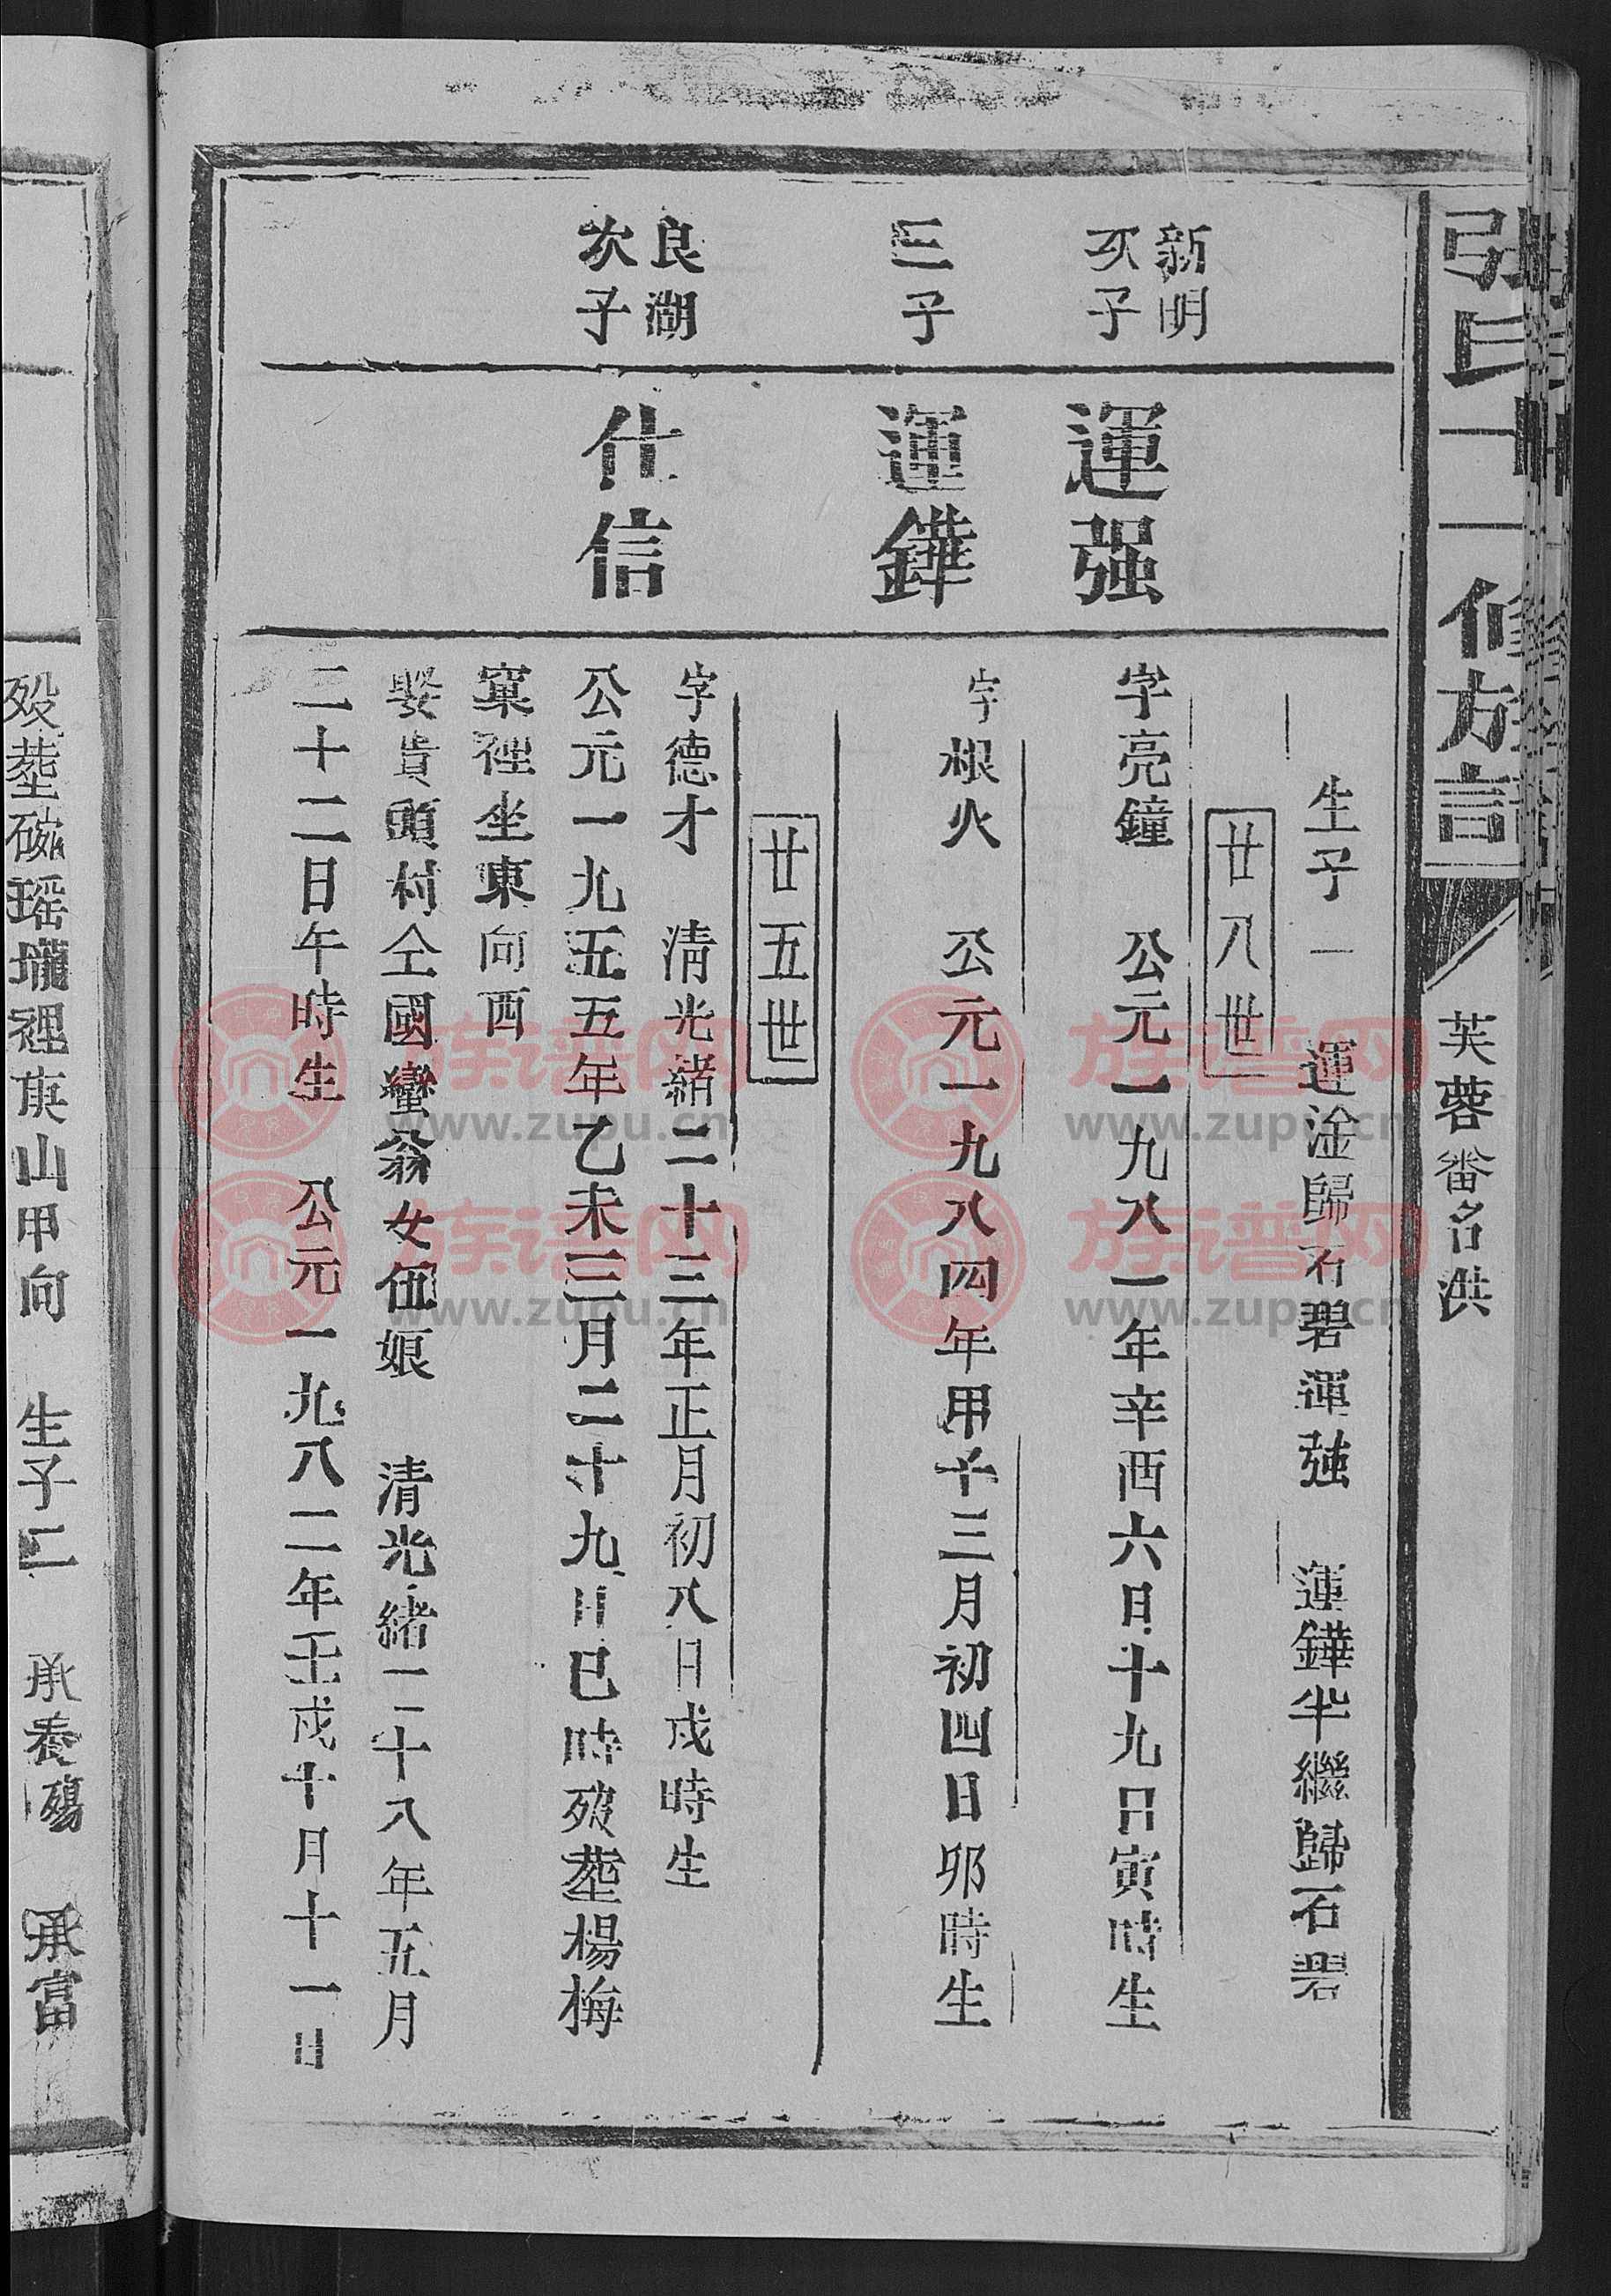 芙蓉番名洪
生子一 運淦歸石碧運強 運鏵半繼歸石碧
廿八世
新明
次子
運强
字亮鐘 公元一九八一年辛酉六日十九日寅時生
三子
運鏵
字根火 公元一九八四年甲子三月初四日卯時生
廿五世
良湖
次子
仕信
字德才 清光緒二十三年正月初八日戌時生
公元一九五五年乙未三月二十九日巳時歿塟楊梅
窠裡坐東向西
娶貴頭村仝國蠻翁女伍娘 清光緒二十八年五月
二十二日午時生 公元一九八二年壬戌十月十一日
歿塟碗瑶壠裡庚山甲向 生子二 承養殤 承富
族谱网
www.zupu.cn
族谱网
www.zupu.cn
族谱网
www.zupu.cn
族谱网
www.zupu.cn